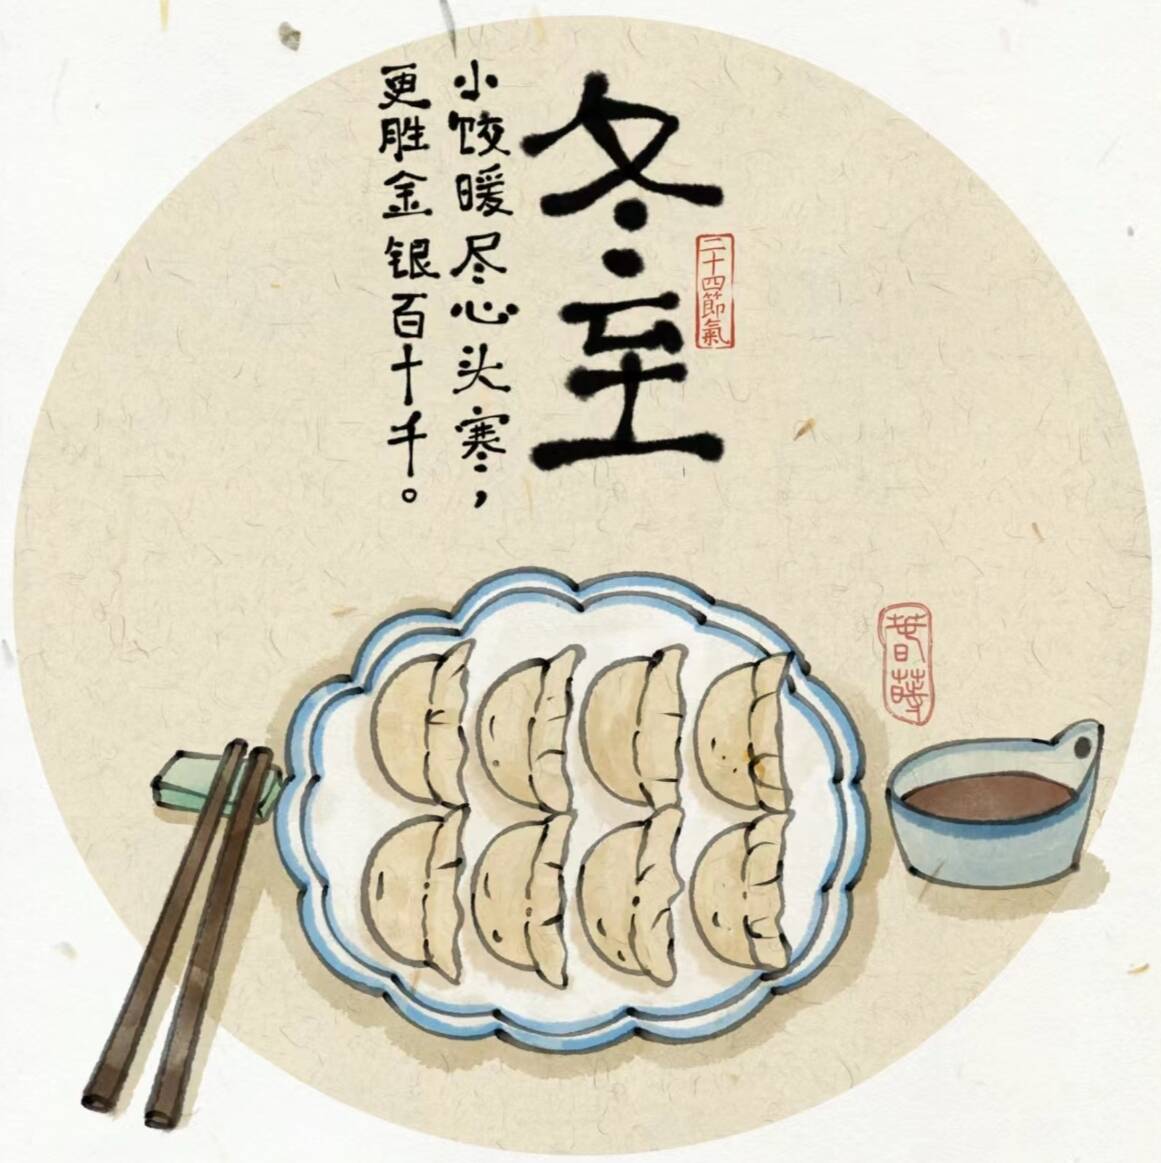 冬至
二十四節氣
小饺暖尽心头寒，
更胜金银百十千。